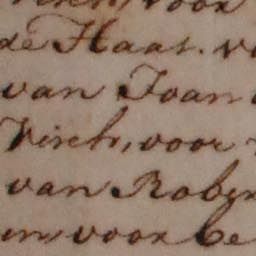 voor
de Haas. v
van Joan
Visch, voor
van Rober
en voor be